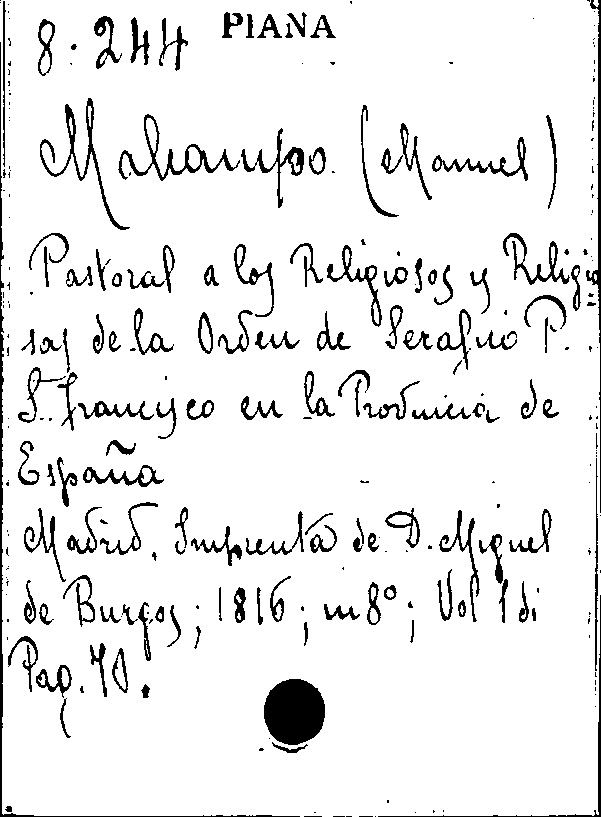 8·244 PIANA
Malcampo (Manuel)
Pastoral a los Religiosos y Religio
sas de la Orden de Serafico P.
S. Francisco en la Provincia de
España
Madrid, Imprenta de D. Miguel
de Burgos; 1816; in 8º; Vol 1 di
Pag. 70.